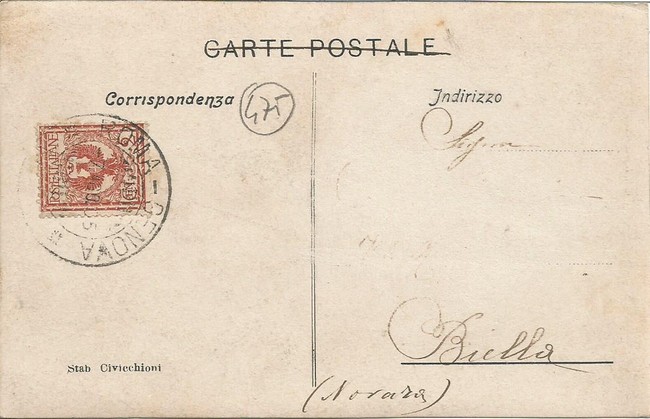 CARTE POSTALE
Corrispondenza
475
Indirizzo
POSTE ITALIANE
ROMA - GENOVA *
Biella
(Novara)
Stab Civicchioni